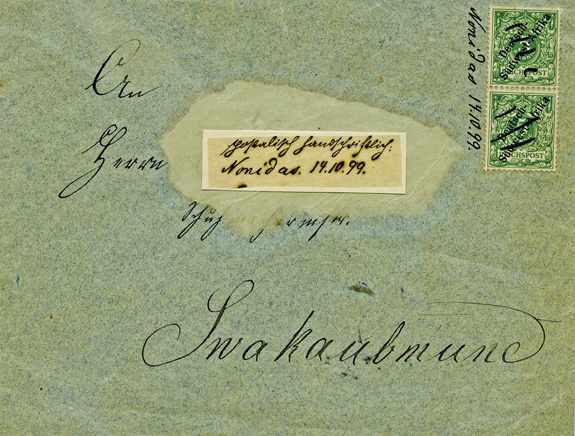 An
Herrn
postalisch handschriftlich.
Nonidas. 14.10.99.
Swakaubmund
Nonidas 14.10.99.
Deutsch-
Südwest-Afrika
REICHSPOST
Deutsch-
Südwest-Afrika
REICHSPOST